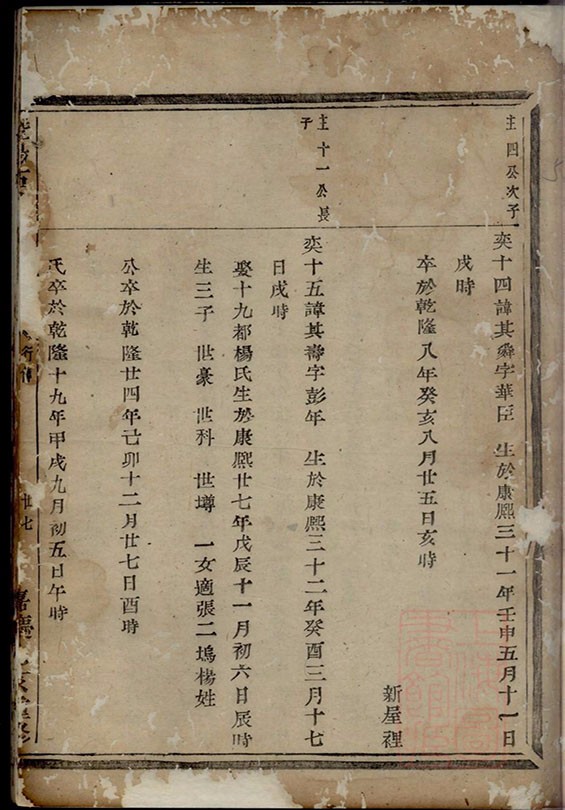 圭四公次子
奕十四諱其舜字華臣 生於康熙三十一年壬申五月十一日
戌時
卒於乾隆八年癸亥八月廿五日亥時
新屋裡
圭十一公長
子
奕十五諱其壽字彭年 生於康熙三十二年癸酉三月十七
日戌時
娶十九都楊氏生於康熙廿七年戊辰十一月初六日辰時
生三子 世豪 世科 世墫 一女適張二塢楊姓
公卒於乾隆廿四年己卯十二月廿七日酉時
氏卒於乾隆十九年甲戌九月初五日午時
廿七